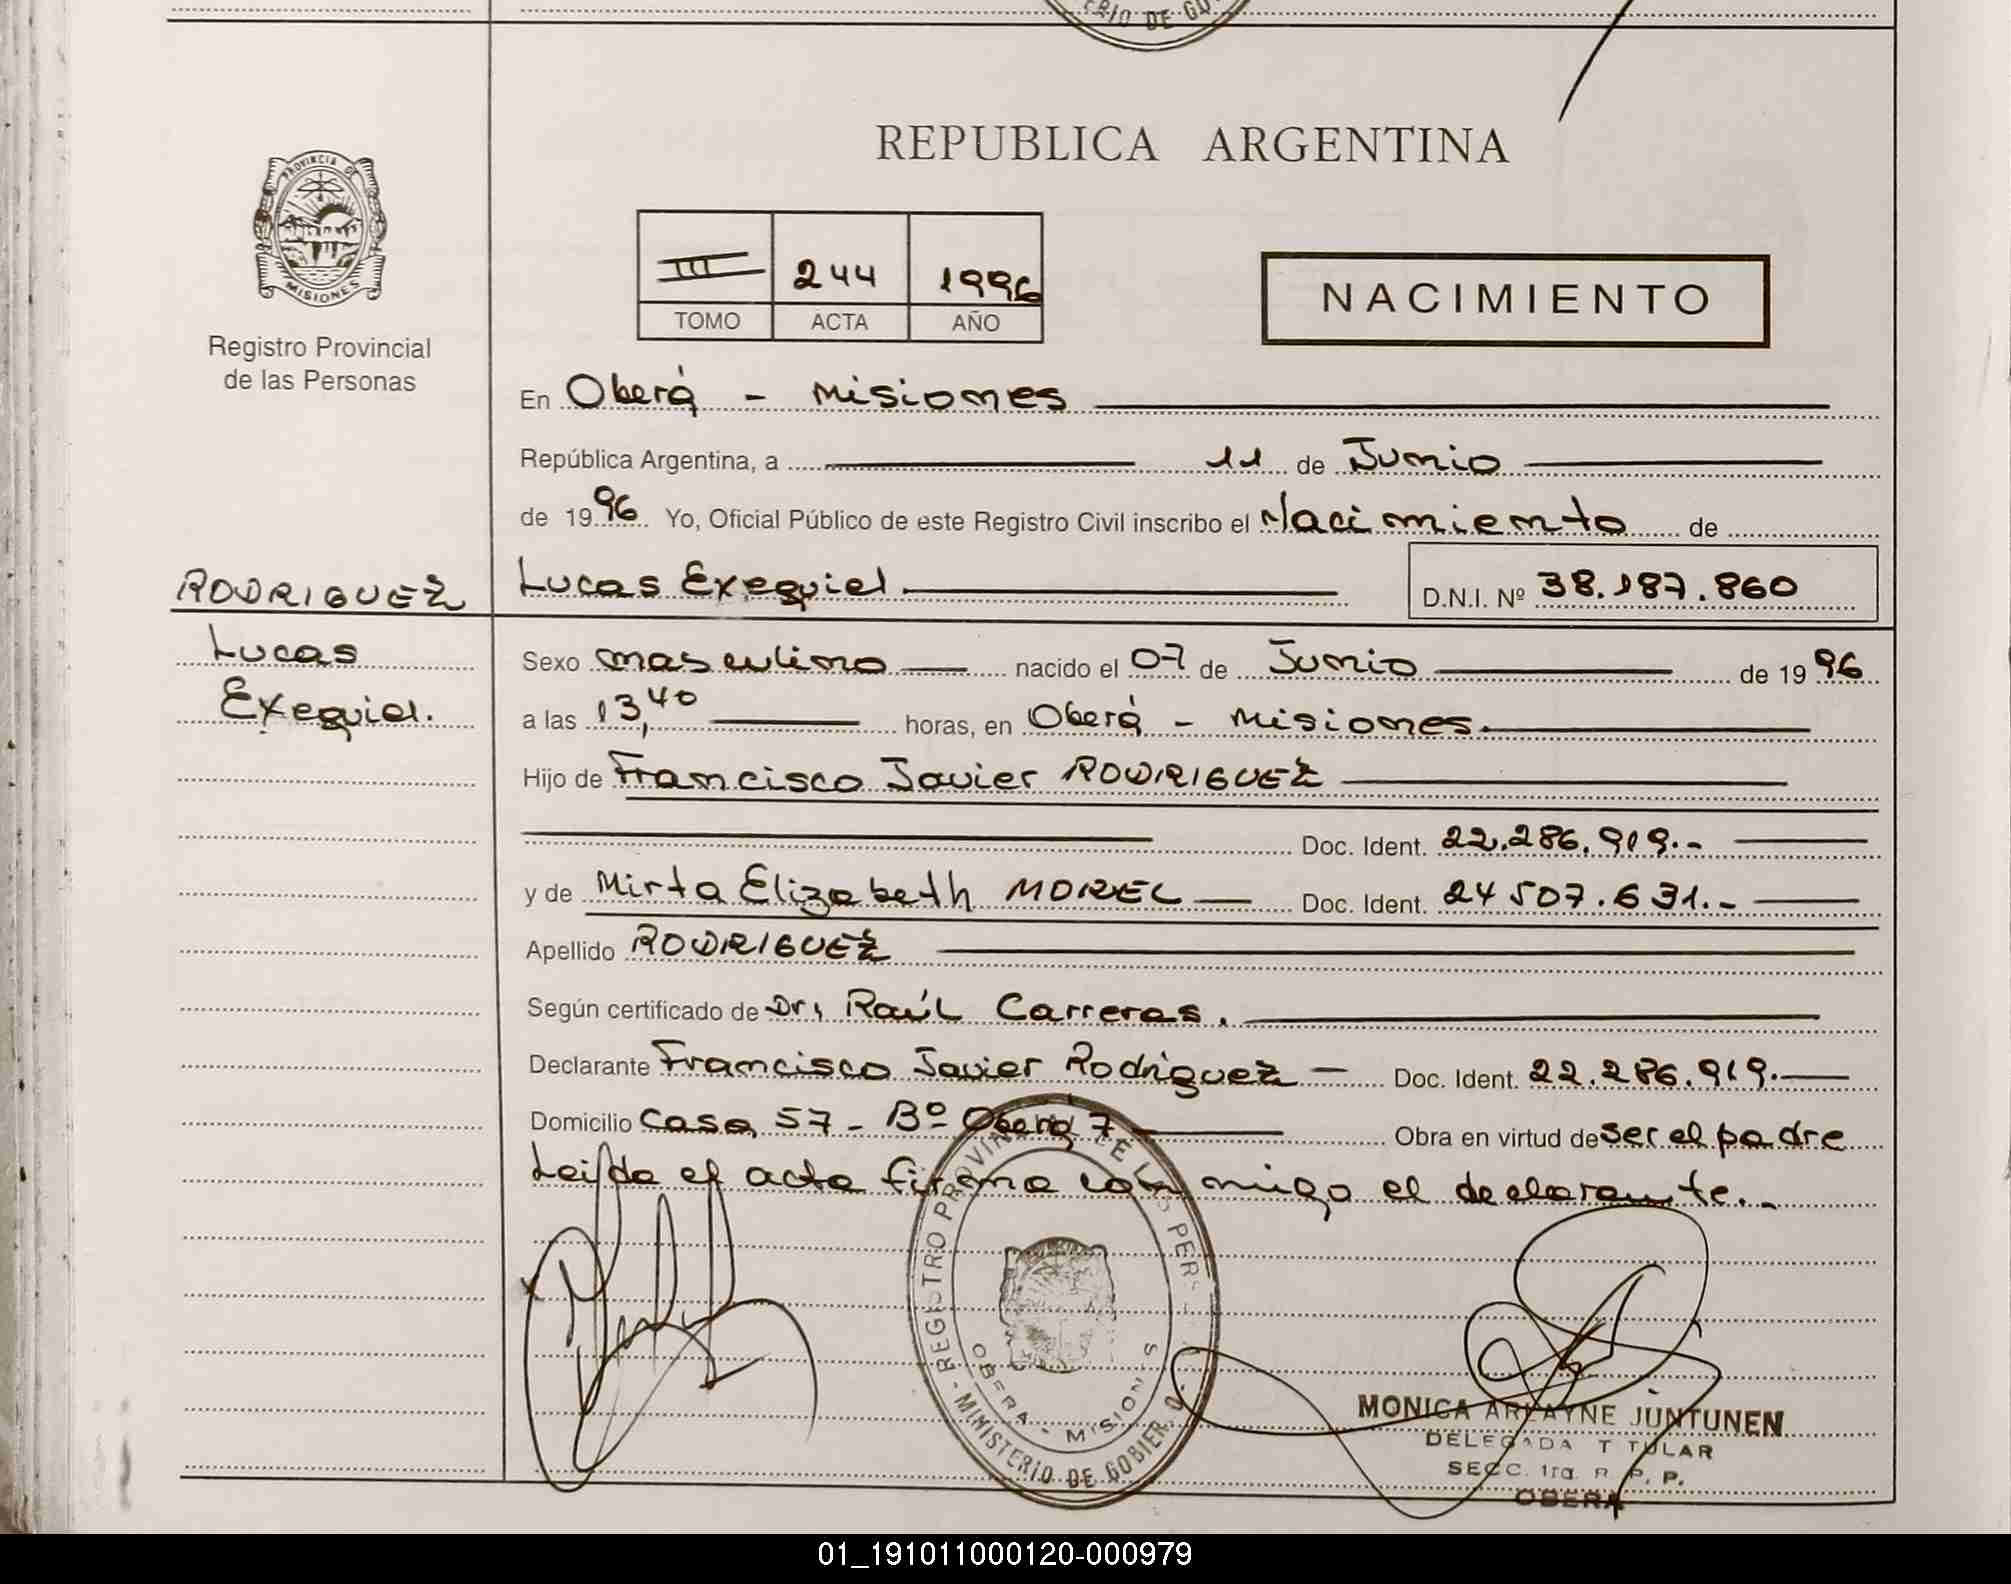 ERIO DE GO
REPUBLICA ARGENTINA
PROVINCIA DE
MISIONES
Registro Provincial
de las Personas
III 244 1996
TOMO ACTA AÑO
NACIMIENTO
En Oberá - Misiones
República Argentina, a 11 de Junio
de 1996 Yo, Oficial Público de este Registro Civil inscribo el Nacimiento de
RODRIGUEZ
Lucas Exequiel
D.N.I. Nº 38.187.860
Lucas
Exequiel.
Sexo masculino nacido el 07 de Junio de 1996
a las 13,40 horas, en Oberá - Misiones.
Hijo de Francisco Javier RODRIGUEZ
Doc. Ident. 22.286.919.-
y de Mirta Elizabeth MOREL Doc. Ident. 24 507.631.-
Apellido RODRIGUEZ
Según certificado de Dr, Raúl Carreras.
Declarante Francisco Javier Rodriguez - Doc. Ident. 22.286.919.
Domicilio Casa 57 - Bº Oberá 7 Obra en virtud de ser el padre
Leida el acta firma conmigo el declarante.-
REGISTRO PROVINCIAL DE LAS PERS
MINISTERIO DE GOBIERNO
OBERA - MISIONES
MONICA ARLAYNE JUNTUNEN
DELEGADA TITULAR
SECC. 1ra. R. P. P.
OBERA
01_191011000120-000979